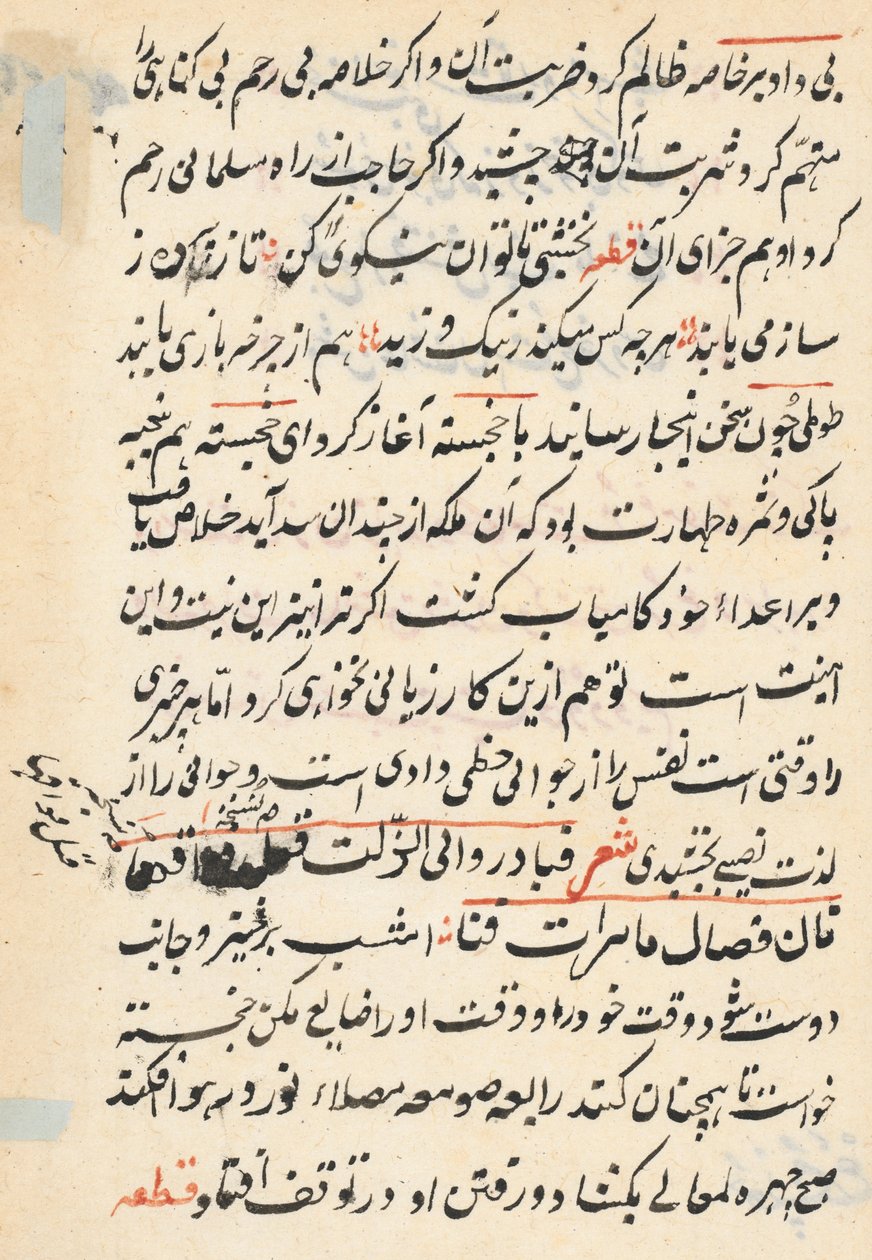 بی داد بر خاصه ظالم کرد ضربت آن و اکر خلاصه بی رحم بی کناهی را
متهّم کرد شربت آن چشید و اکر حاجب از راه سلمانی رحم
کرد او هم جزای آن قطعه نخشبی تا توان نیکوی کن تازه آمده ز
ساز می یابند هر چه کس میکند ز نیک و ز بد هم از چرخه بازی یابند
طوطی چون سخن اینجا رسانید با خجسته آغاز کرد ای خجسته هم نتیجه
پاکی و ثمره طهارت بود که آن ملکه از چندان شداید خلاص یافت
و بر اعداء خود کامیاب کشت اکر ترا نیز این نیت و این
امنیت است تو هم ازین کار زیانی نخواهی کرد امّا هر چیزی
را وقتی است نفس را از جوانی حظی دادی است و جوانی را از
لذت نصیبی بخشیدی شعر فبادر والی الزّلت قبل فواقدها
فان فصال مابرات فتا امشب برخیز و جانب
دوست شو و وقت خود را و وقت او را ضایع مکن خجسته
خواست تا همچنان کند رابعه صومعه مصلاء نور در هوا افکند
صبح چهره لمعالی بکشاد و رفتن او در توقف افتاد قطعه